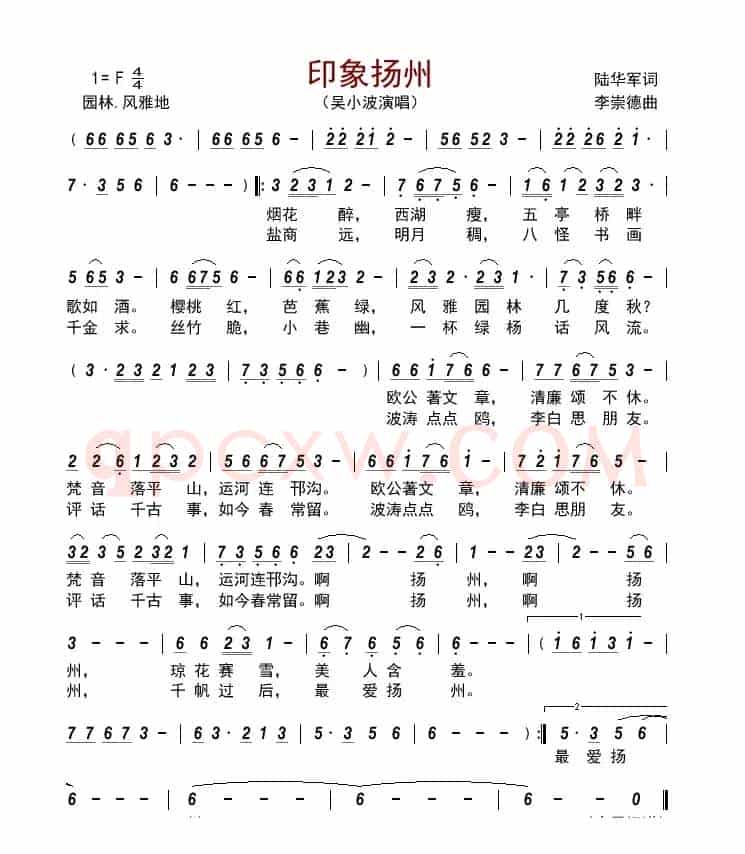 印象扬州
1= F 4/4
陆华军词
园林.风雅地
（吴小波演唱）
李崇德曲
( 66 65 6 3 · | 66 65 6 - | 22 21 2 - | 5 · 6 5 6 - | 22 26 2 1 |
7 · 3 5 6 | 6 - - - ) ‖: 3 231 2 - | 7 675 6 - | 16 1 2323 |
烟花 醉， 西湖 瘦， 五 亭 桥 畔
盐商 远， 明月 稠， 八 怪 书 画
5 653 - | 6 675 6 - | 66 1232 - | 232 2 · 32 | 7 3 56 6 - |
歌如 酒。 樱桃 红， 芭 蕉 绿， 风 雅 园 林 几 度 秋？
千金 求。 丝竹 脆， 小 巷 幽， 一 杯 绿 杨 话 风 流。
( 3 · 2321 23 | 73 56 6 - | 6 - - - ) | 66 1766 - | 77 6765 3 - |
欧公 著文 章， 清廉 颂 不 休。
波涛 点点 鸥， 李白 思 朋 友。
qpcxw.COM
2 26 1232 | 56 06 75 3 | 66 1766 - | 72 1766 5 - |
梵 音 落平 山，运河 连 邗沟。 欧公著文 章， 清廉 颂不 休。
评 话 千古 事，如今 春 常留。 波涛点点 鸥， 李白 思朋 友。
32 35 2321 | 73 56 6 23 | 2 - - 26 | 1 - - 23 | 2 - - 56 |
梵 音 落平 山，运河连邗沟。啊 扬 州，啊 扬
评 话 千古 事，如今春常留。啊 扬 州，啊 扬
1
3 - - - | 6 6 23 - | 5 67 65 6 | 6 - - - | ( 16 1 31 |
州， 琼 花 赛 雪， 美 人 含 羞。
州， 千 帆 过 后， 最 爱 扬 州。
2
77 67 3 - | 63 · 21 3 | 5 · 3 5 6 | 6 - - - ) :‖ 5 · 3 56 |
最 爱 扬
6 - - | 6 - - - | 6 - - - | 6 - 0 ‖